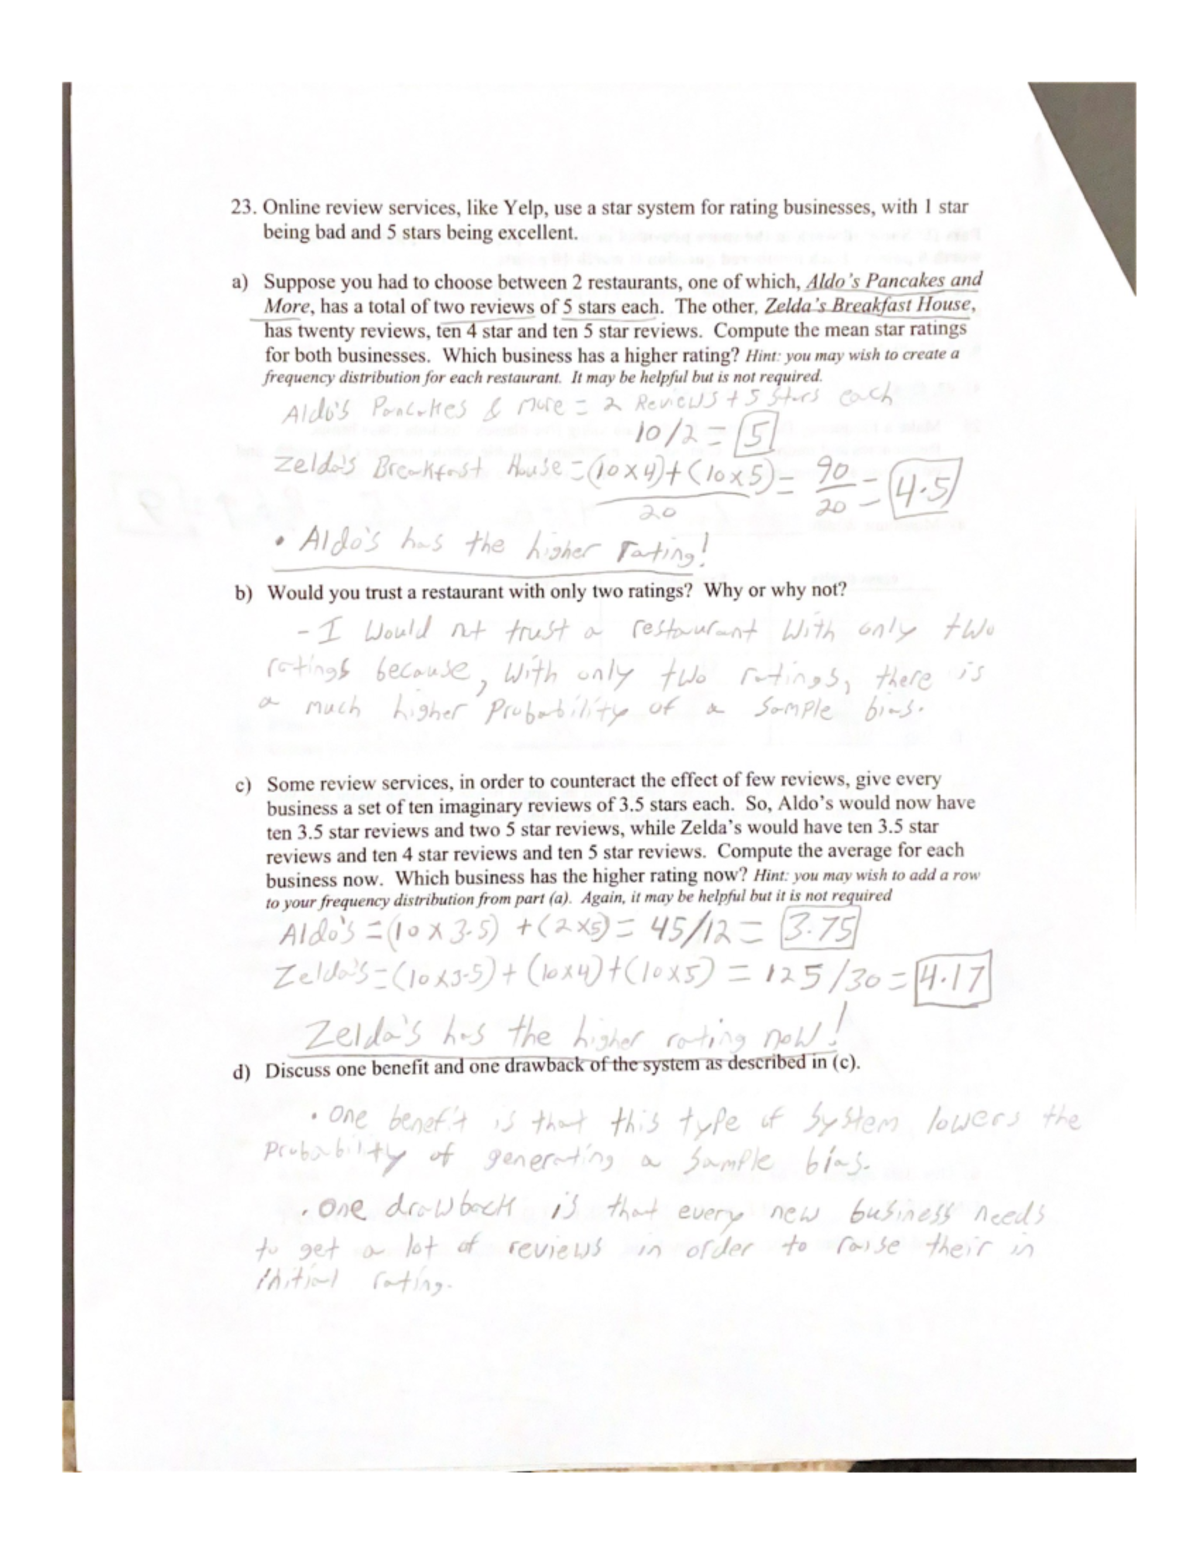 23. Online review services, like Yelp, use a star system for rating businesses, with 1 star
being bad and 5 stars being excellent.
a) Suppose you had to choose between 2 restaurants, one of which, Aldo's Pancakes and
More, has a total of two reviews of 5 stars each. The other, Zelda's Breakfast House,
has twenty reviews, ten 4 star and ten 5 star reviews. Compute the mean star ratings
for both businesses. Which business has a higher rating? Hint: you may wish to create a
frequency distribution for each restaurant. It may be helpful but is not required.
Aldo's Pancakes & More = 2 Reviews + 5 Stars each
10/2 = 5
Zelda's Breakfast House = (10x4)+(10x5) = 90 = 4.5
20 20
• Aldo's has the higher rating!
b) Would you trust a restaurant with only two ratings? Why or why not?
- I would not trust a restaurant with only two
ratings because, with only two ratings, there is
a much higher Probability of a sample bias.
c) Some review services, in order to counteract the effect of few reviews, give every
business a set of ten imaginary reviews of 3.5 stars each. So, Aldo's would now have
ten 3.5 star reviews and two 5 star reviews, while Zelda's would have ten 3.5 star
reviews and ten 4 star reviews and ten 5 star reviews. Compute the average for each
business now. Which business has the higher rating now? Hint: you may wish to add a row
to your frequency distribution from part (a). Again, it may be helpful but it is not required
Aldo's = (10 x 3.5) + (2x5) = 45/12 = 3.75
Zelda's = (10x3.5) + (10x4)+(10x5) = 125/30 = 4.17
Zelda's has the higher rating now!
d) Discuss one benefit and one drawback of the system as described in (c).
• One benefit is that this type of system lowers the
Probability of generating a sample bias.
• One drawback is that every new business needs
to get a lot of reviews in order to raise their in
initial rating.